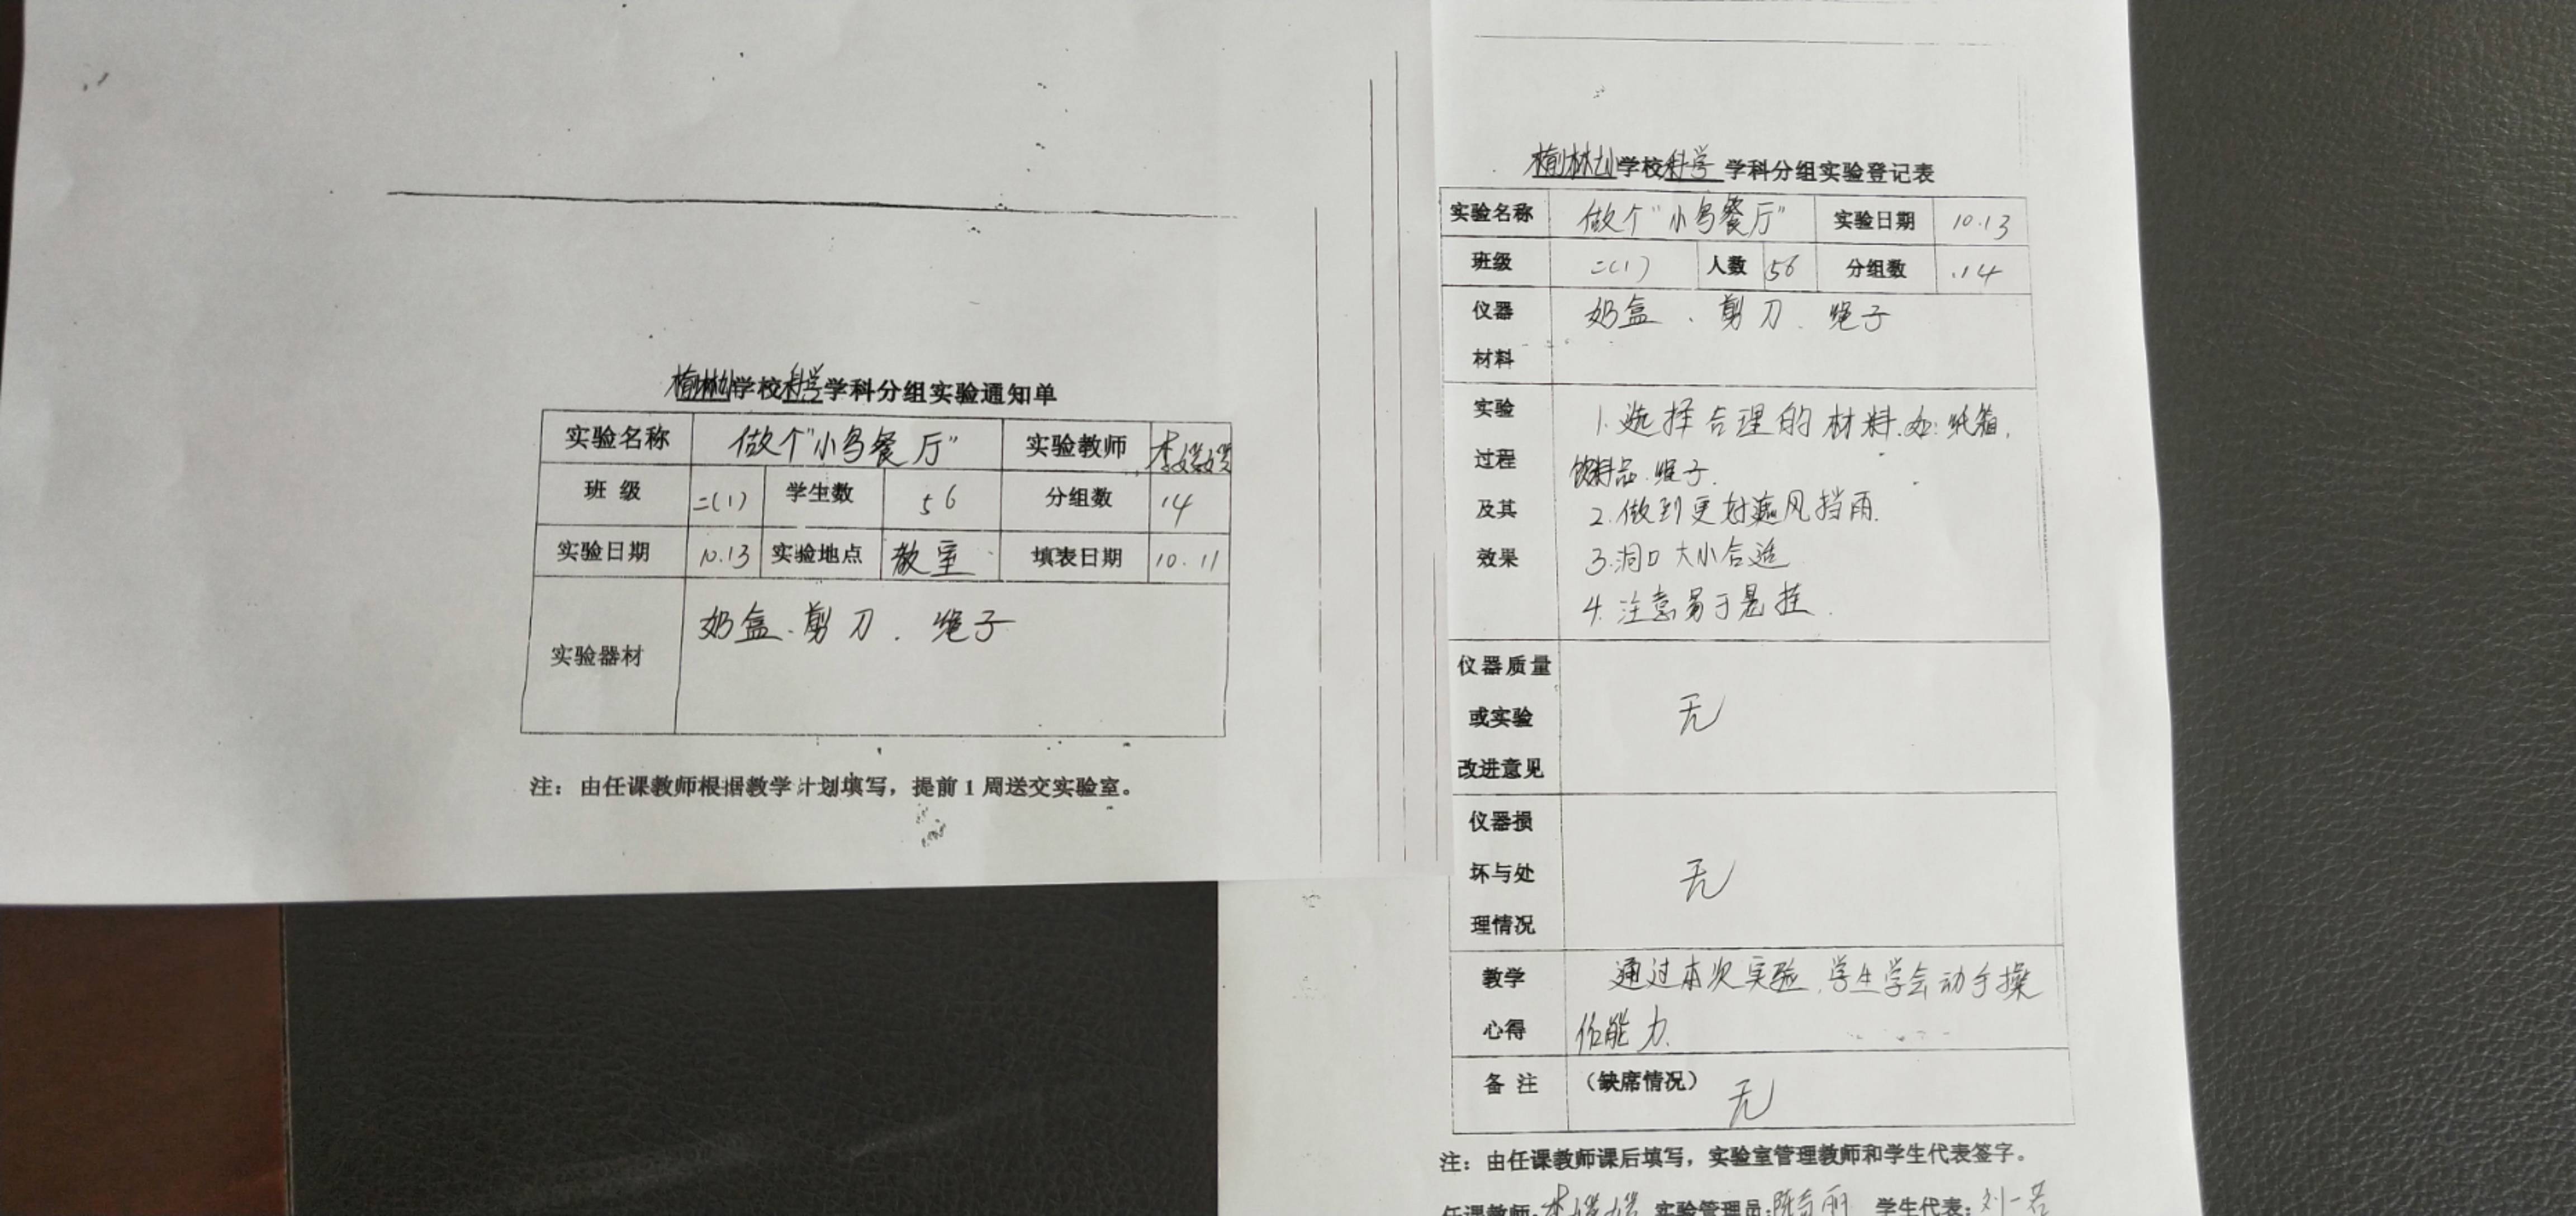 学校科学学科分组实验通知单
实验名称 做个"小鸟餐厅" 实验教师
班 级 二(1) 学生数 56 分组数 14
实验日期 10.13 实验地点 教室 填表日期 10.11
实验器材 奶盒、剪刀、绳子
注：由任课教师根据教学计划填写，提前1周送交实验室。
学校科学 学科分组实验登记表
实验名称 做个"小鸟餐厅" 实验日期 10.13
班级 二(1) 人数 56 分组数 14
仪器
材料
奶盒、剪刀、绳子
实验
过程
及其
效果
1.选择合理的材料.如:纸箱,
饮料品.绳子.
2.做到更好遮风挡雨.
3.洞口大小合适
4.注意易于悬挂.
仪器质量
或实验
改进意见
无
仪器损
坏与处
理情况
无
教学
心得
通过本次实验,学生学会动手操
作能力.
备 注 （缺席情况） 无
注：由任课教师课后填写，实验室管理教师和学生代表签字。
任课教师: 实验管理员: 学生代表:刘一